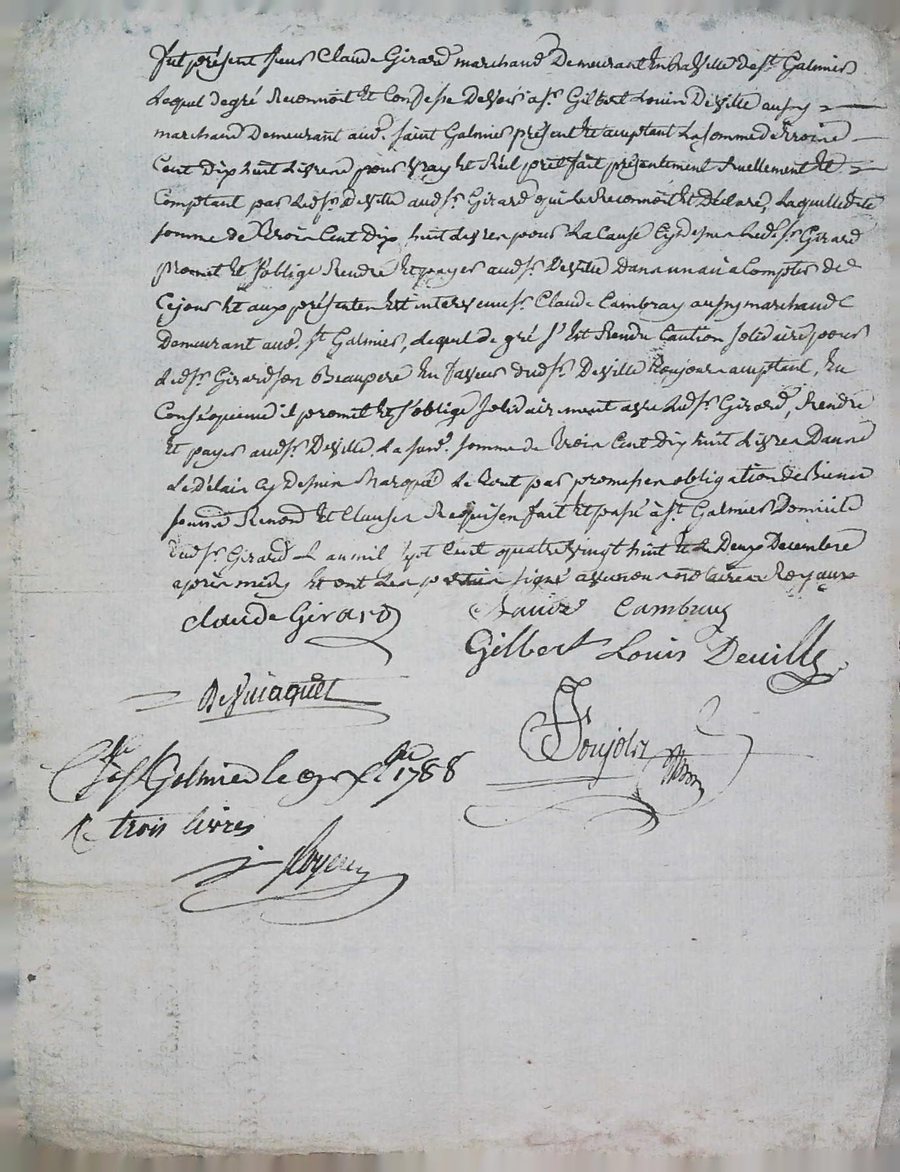 fut présent sieur Claude Girard marchand Demeurant En la Ville de st. Galmier
Lequel de gré Reconnoit Et Confesse Devoir a sr. Gilbert Louis Deville aussy
marchand Demeurant aud. saint Galmier présent Et acceptant La somme de Trois
Cent Dix huit Livres pour vray Et Réel prêt fait présentement Réellement Et
Comptant par Led. sr. Deville aud. sr. Girard qui Le Reconnoit Et Déclare, Laquelle dite
somme de Trois Cent Dix huit Livres pour La Cause Cy Dessus Led. sr. Girard
promet Et s'oblige Rendre Et payer aud. sr. Deville Dans un an à Compter de
Ce jour Et aux présentes Est intervenu sr. Claude Cambray aussy marchand
Demeurant aud. st. Galmier, Lequel de gré s'est Rendu Caution solidaire pour
Led. sr. Girard son Beaupere En faveur dud. sr. Deville Toujours acceptant, En
Conséquence il promet Et s'oblige solidairement avec Led. sr. Girard, Rendre
Et payer aud. sr. Deville La susd. somme de Trois Cent Dix huit Livres Dans
Le Délai Cy Dessus Marqué Le tout par promesses obligation de Biens
soumis Renond. Et Clauses Requises fait Et passé à st. Galmier Domicile
dud. sr. Girard L'an mil sept Cent quatre vingt huit Et Le Deux Decembre
après midy Et ont Les parties signé avec nous notaires Royaux
claude Girard Claude Cambray
Gilbert Louis Deville
st Galmier le 1788
trois livres